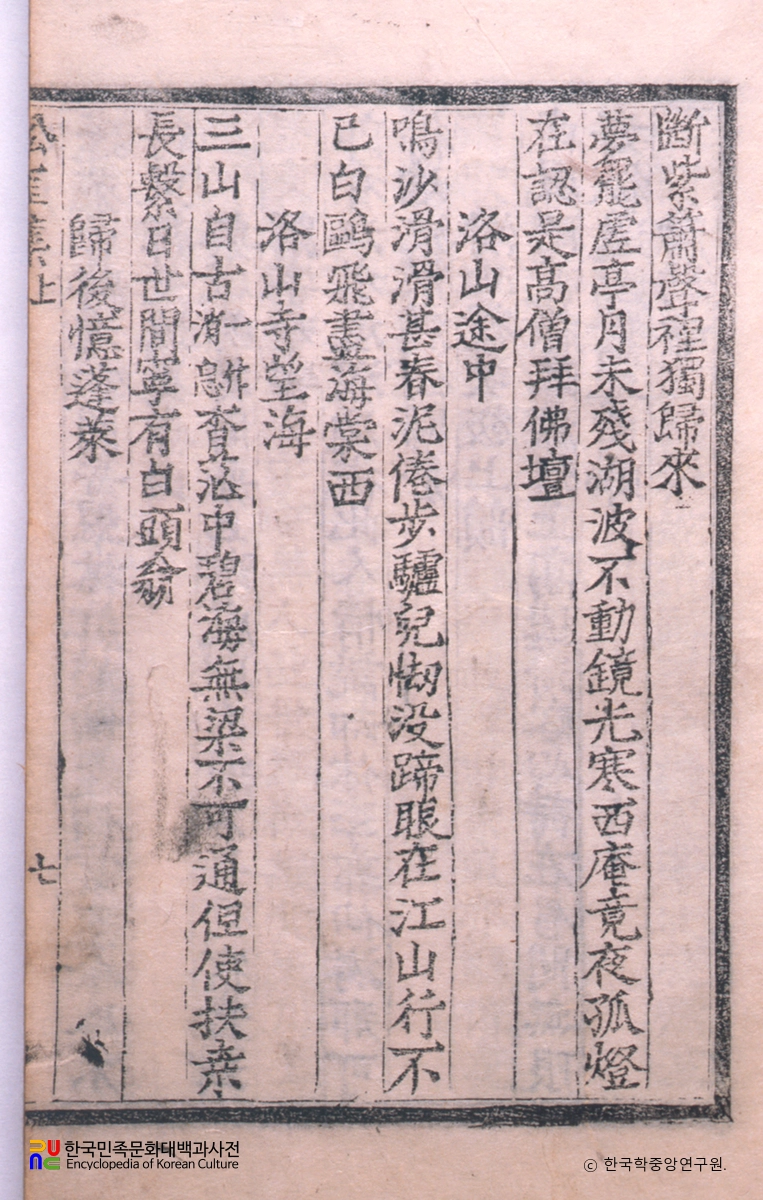 斷紫簫聲裡獨歸來
夢罷虛亭月未殘湖波不動鏡光寒西庵竟夜孤燈
在認是高僧拜佛壇
洛山途中
鳴沙滑滑甚春泥倦步驢兒㤼没蹄眼在江山行不
已白鷗飛盡海棠西
洛山寺望海
三山自古一作消息杳茫中碧海無梁不可通但使扶桒
長繫日世間寧有白頭翁
歸後憶蓬萊
集上 七
한국민족문화대백과사전
Encyclopedia of Korean Culture
ⓒ 한국학중앙연구원.